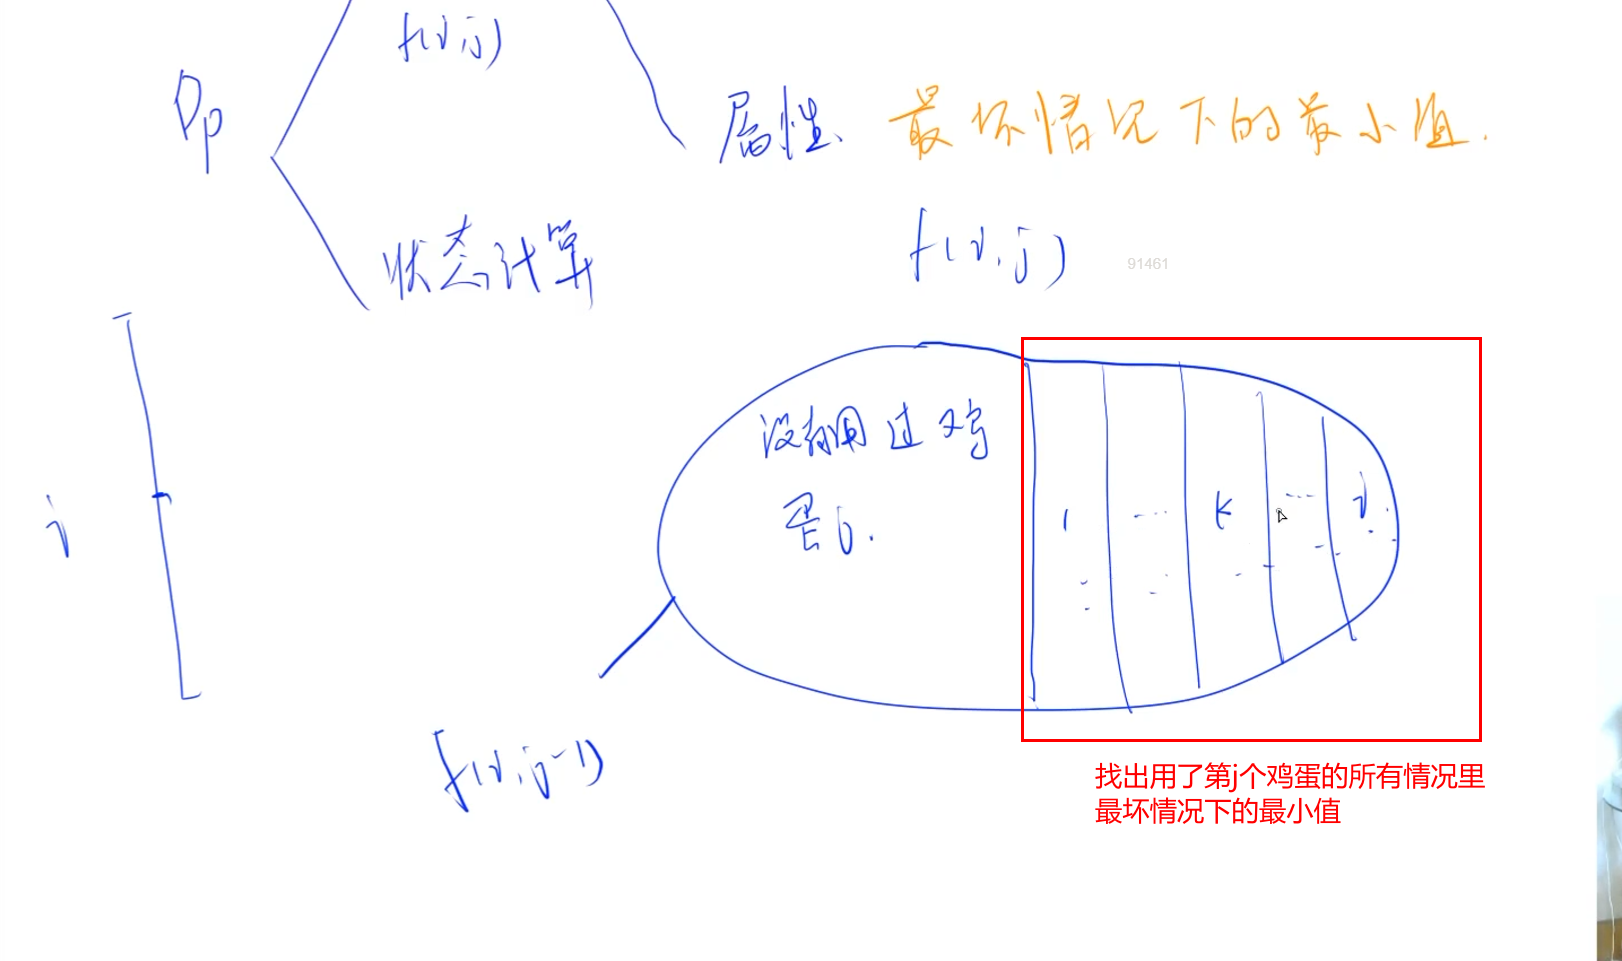 f(i,j)
Dp
属性、最坏情况下的最小值.
状态计算
f(i,j)
91461
没有用过鸡
蛋j.
i
1 ... k ... i
f(i,j-1)
找出用了第j个鸡蛋的所有情况里
最坏情况下的最小值